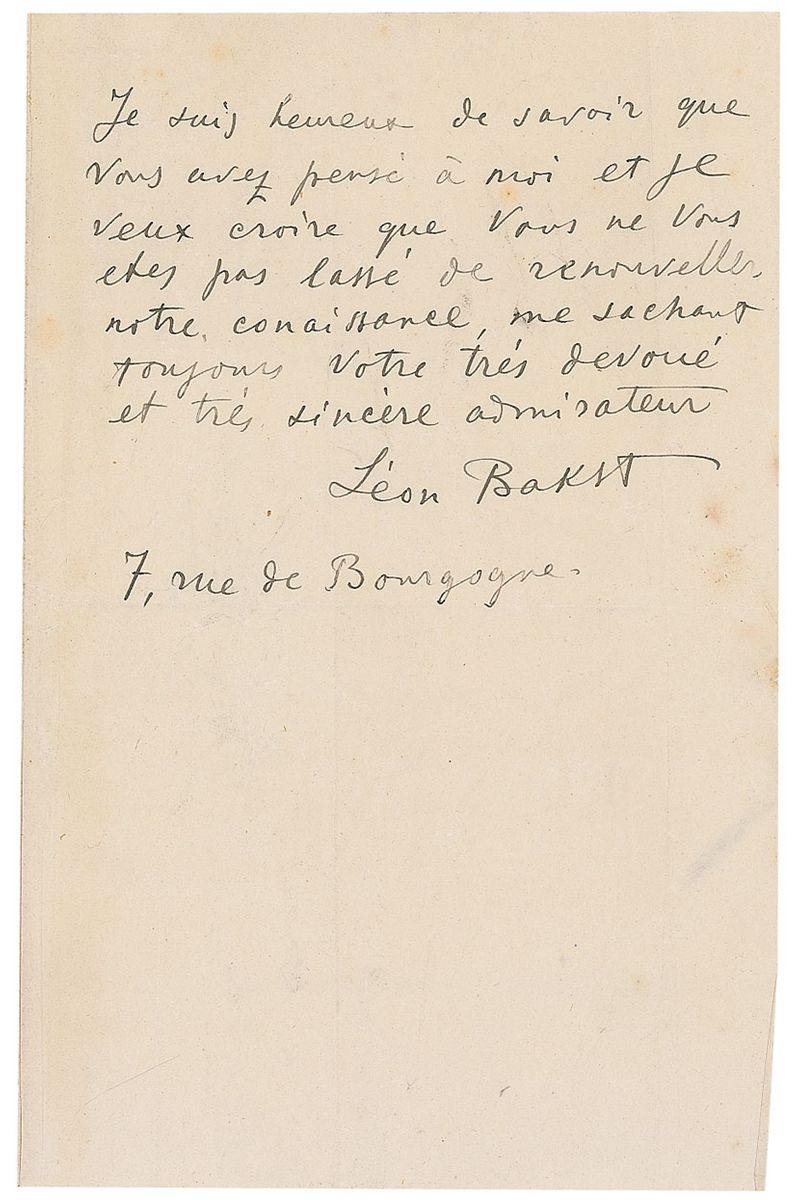 Je suis heureux de savoir que
Vous avez pensé à moi et je
veux croire que Vous ne Vous
etes pas lassé de renouveller
notre conaissance, me sachant
toujours Votre trés devoué
et trés sincère admirateur
Léon Bakst
7, rue de Bourgogne.